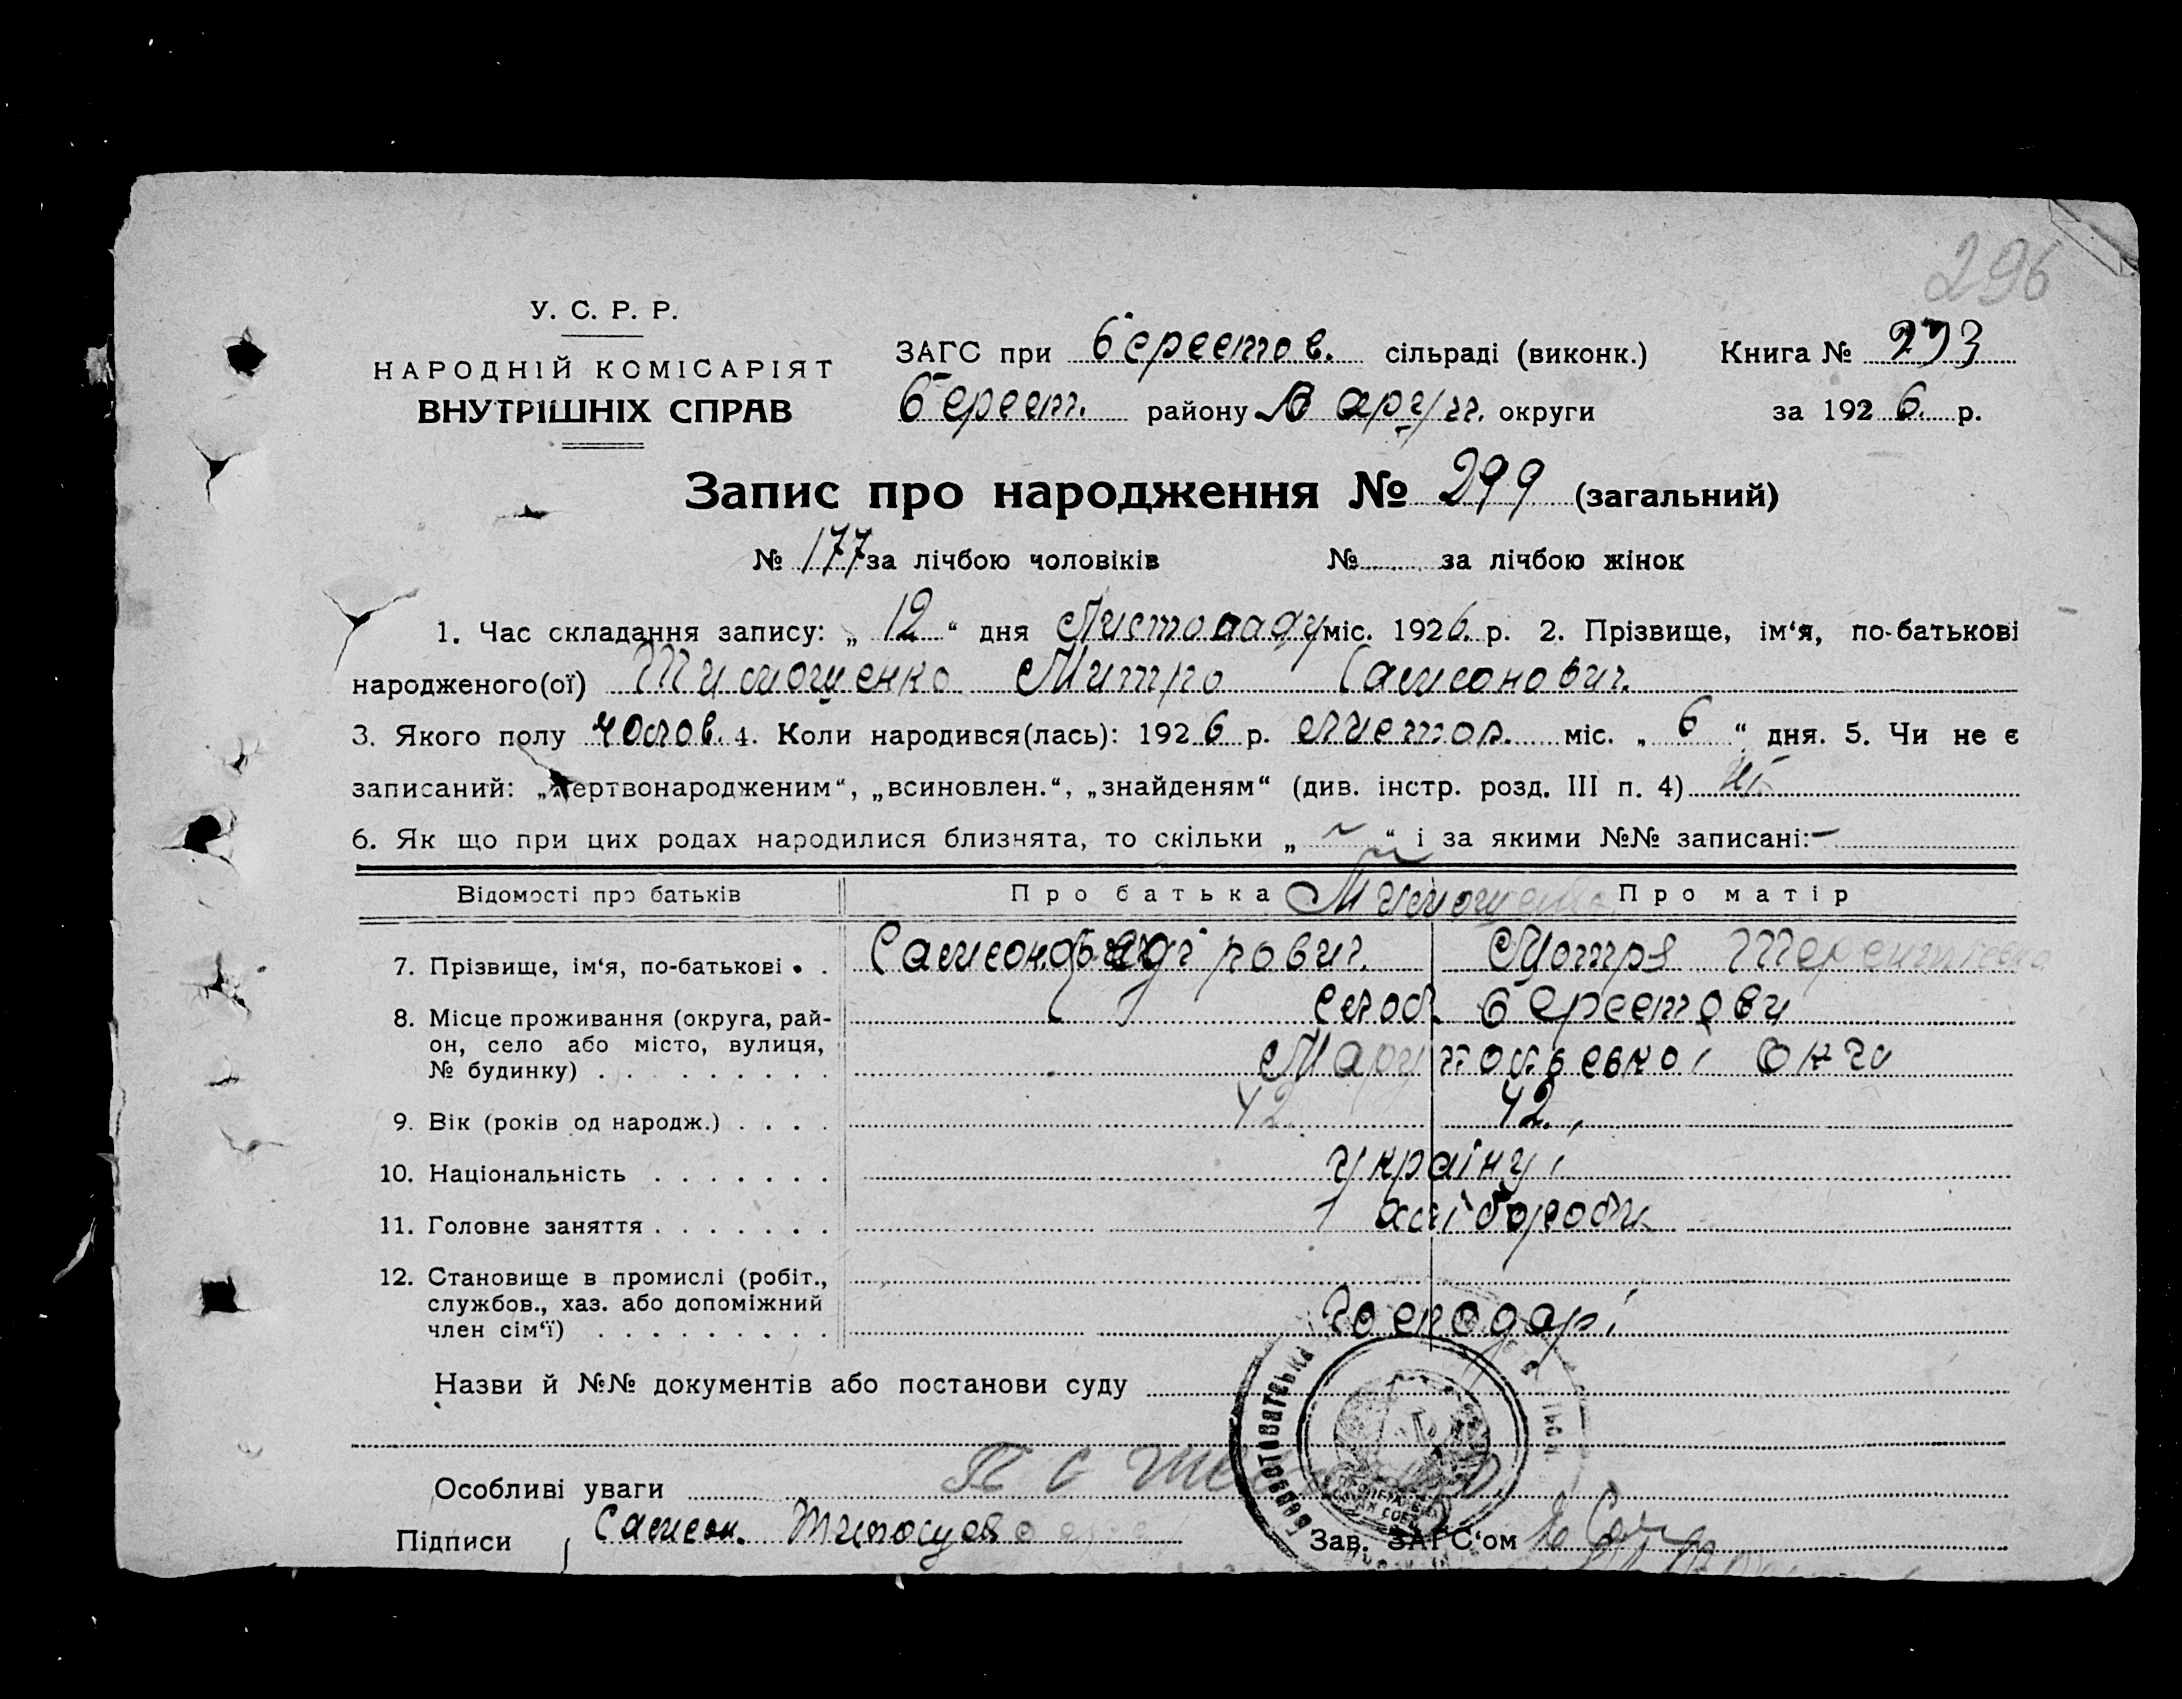 296
У. С. Р. Р.
НАРОДНІЙ КОМІСАРІЯТ
ВНУТРІШНІХ СПРАВ
ЗАГС при Берестов. сільраді (виконк.) Книга №
Берест. району округи за 1926 р.
Запис про народження № 299 (загальний)
№ 177 за лічбою чоловіків № за лічбою жінок
1. Час складання запису: „ 12 “ дня Листопаду міс. 1926. р. 2. Прізвище, ім‘я, по-батькові
народженого(ої) Тимошенко Митро Самсонович.
3. Якого полу чолов. 4. Коли народився(лась): 1926 р. листоп. міс. „ 6 “ дня. 5. Чи не є
записаний: „мертвонародженим“, „всиновлен.“, „знайденям“ (див. інстр. розд. III п. 4) ні
6. Як що при цих родах народилися близнята, то скільки „ – “ і за якими №№ записані: –
Відомості про батьків Про батька Тимошенко Про матір
7. Прізвище, ім‘я, по-батькові . . Самсон Мотря Терентіївна
8. Місце проживання (округа, рай- слоб. Берестови
он, село або місто, вулиця,
№ будинку) . . . . . . . . . Маріупольської окги
9. Вік (років од народж.) . . . . 42. 42.
10. Національність . . . . . . . україну і
11. Головне заняття . . . . . . . хліборобн
12. Становище в промислі (робіт.,
службов., хаз. або допоміжний
член сім‘ї) . . . . . . . . . Господарі
Назви й №№ документів або постанови суду
Особливі уваги
Підписи Самсон. Зав. ЗАГС‘ом